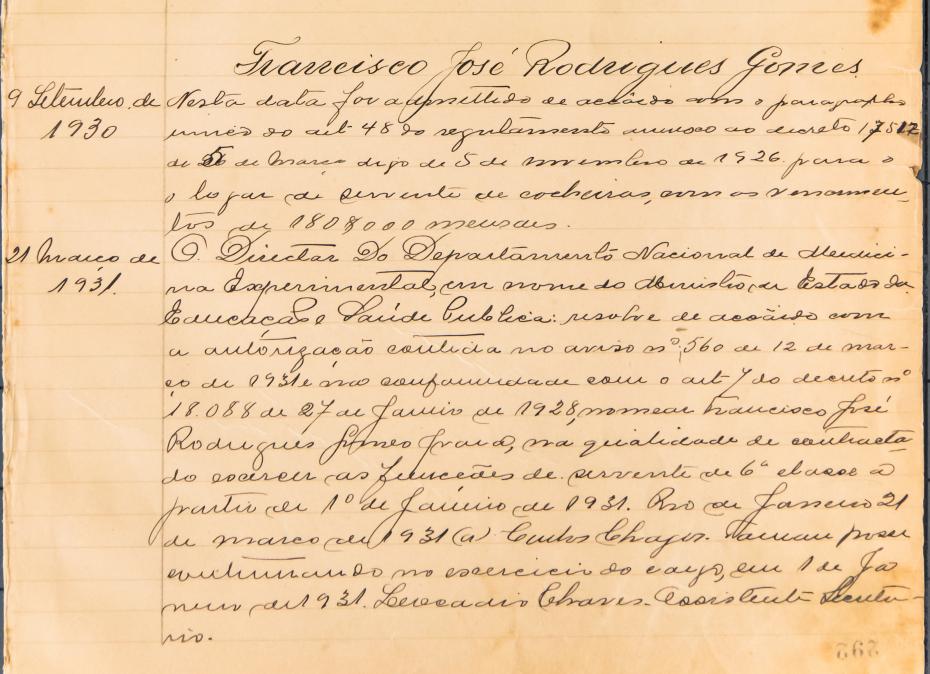 Francisco José Rodrigues Gomes
9 Setembro de Nesta data foi admittido de accôrdo com o paragrapho
1930 unico do art 48 do regulamento annexo ao decreto 17512
de 5 de Março digo de 5 de novembro de 1926 para o
o logar de servente de cocheiras, com os vencimen-
tos de 180$000 mensaes.
21 Março de O Director Do Departamento Nacional de Medici-
1931. na Experimental, em nome do Ministro de Estado da
Educação e Saúde Publica: resolve de accôrdo com
a autorização contida no aviso nº 560 de 12 de mar-
ço de 1931 e na conformidade com o art 7 do decreto nº
18.088 de 27 de Janeiro de 1928, nomear Francisco José
Rodrigues Gomes para, na qualidade de contracta
do exercer as funcções de servente de 6ª classe a
partir de 1º de Janeiro de 1931. Rio de Janeiro 21
de março de 1931 (a) Carlos Chagas. Tomou posse
continuando no exercicio do cargo, em 1 de Ja
neiro de 1931. Leocadio Chaves. Assistente Secreta-
rio.
292